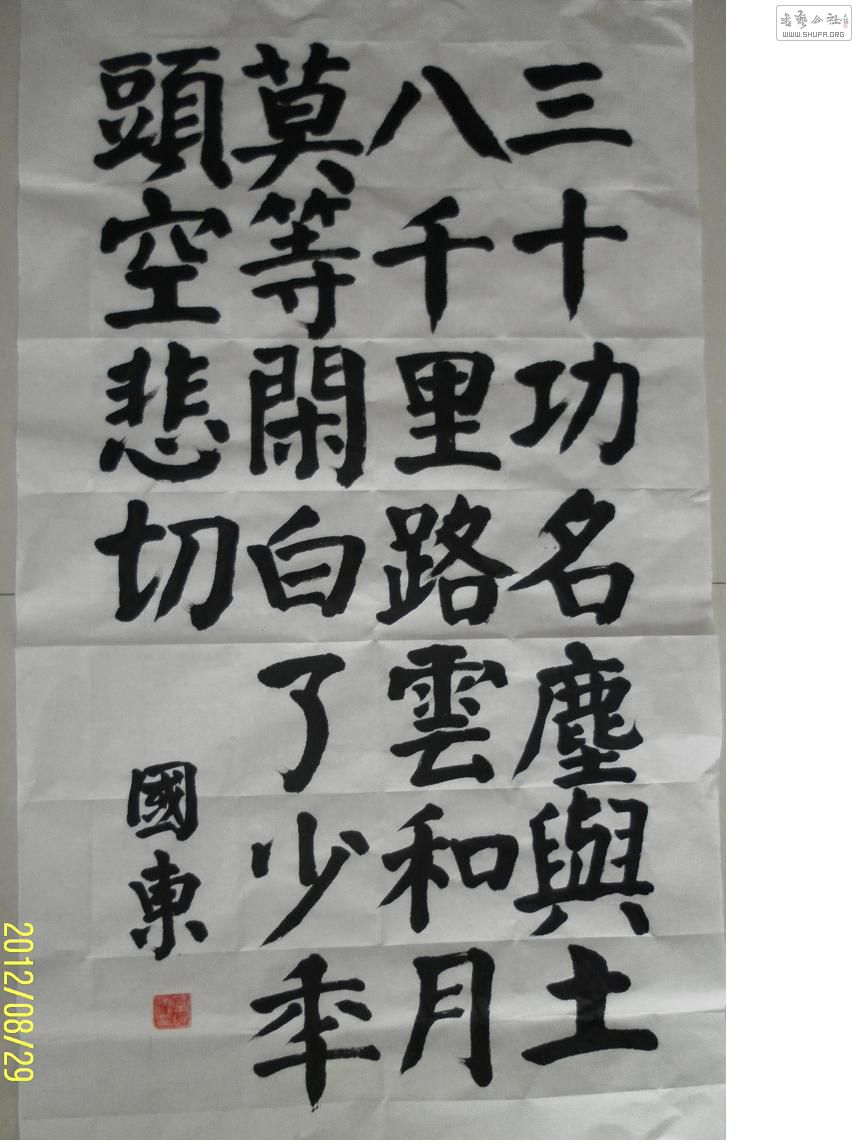 三十功名塵與土
八千里路雲和月
莫等閑白了少年
頭空悲切
國東
2012/08/29
WWW.SHUFA.ORG